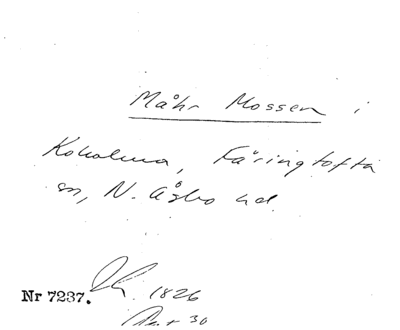 Måhr Mossen i
Koholma, Färingtofta
sn, N. Åsbo hd.
Nr 7237. 1826
30